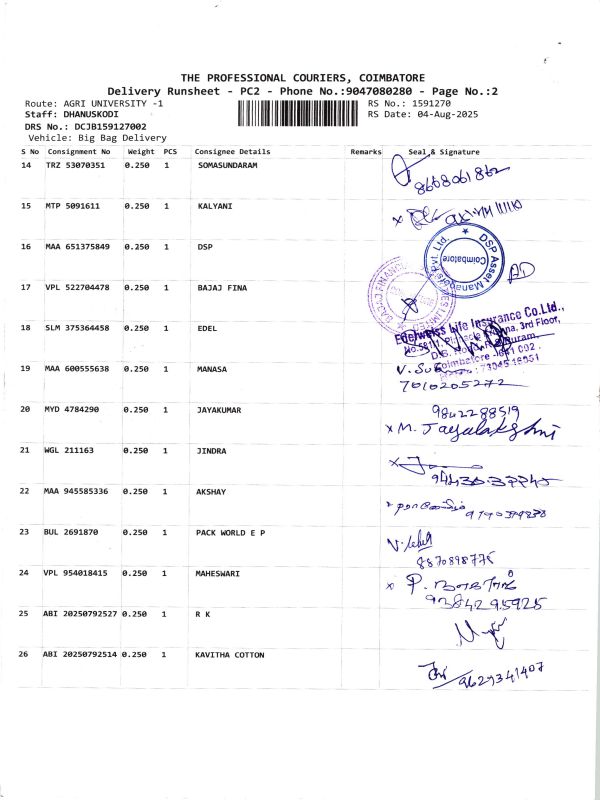 THE PROFESSIONAL COURIERS, COIMBATORE
Delivery Runsheet - PC2 - Phone No.:9047080280 - Page No.:2
Route: AGRI UNIVERSITY -1 RS No.: 1591270
Staff: DHANUSKODI RS Date: 04-Aug-2025
DRS No.: DCJB159127002
Vehicle: Big Bag Delivery
S No Consignment No Weight PCS Consignee Details Remarks Seal & Signature
14 TRZ 53070351 0.250 1 SOMASUNDARAM
8608061862
15 MTP 5091611 0.250 1 KALYANI
16 MAA 651375849 0.250 1 DSP
DSP Asset Managers Pvt. Ltd. Coimbatore
17 VPL 522704478 0.250 1 BAJAJ FINA
BAJAJ FINANCE
18 SLM 375364458 0.250 1 EDEL
Edelweiss Life Insurance Co.Ltd.,
3rd Floor,
Coimbatore - 641 002.
19 MAA 600555638 0.250 1 MANASA
7010205272
20 MYD 4784290 0.250 1 JAYAKUMAR
9842288519
x M. Jayalakshmi
21 WGL 211163 0.250 1 JINDRA
22 MAA 945585336 0.250 1 AKSHAY
23 BUL 2691870 0.250 1 PACK WORLD E P
8870898775
24 VPL 954018415 0.250 1 MAHESWARI
9384295925
25 ABI 20250792527 0.250 1 R K
26 ABI 20250792514 0.250 1 KAVITHA COTTON
9629341407